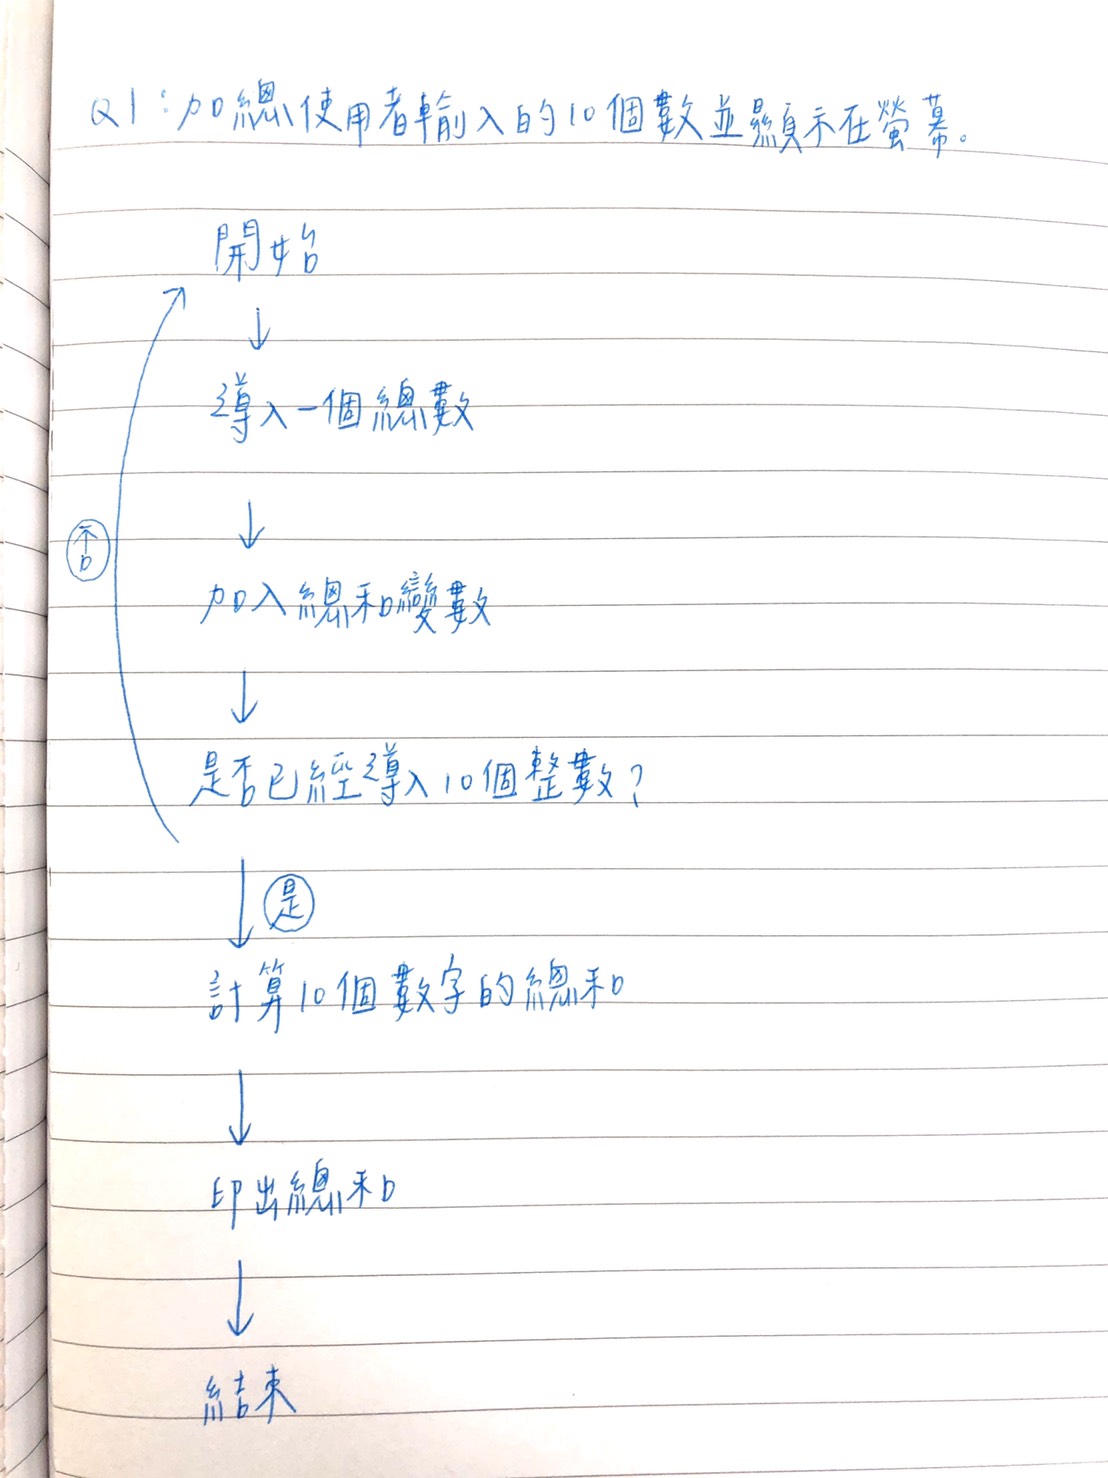 Q1:加總使用者輸入的10個數並顯示在螢幕。
開始
↓
導入一個總數
↓
加入總和變數
↓
是否已經導入10個整數?
否
↓ 是
計算10個數字的總和
↓
印出總和
↓
結束